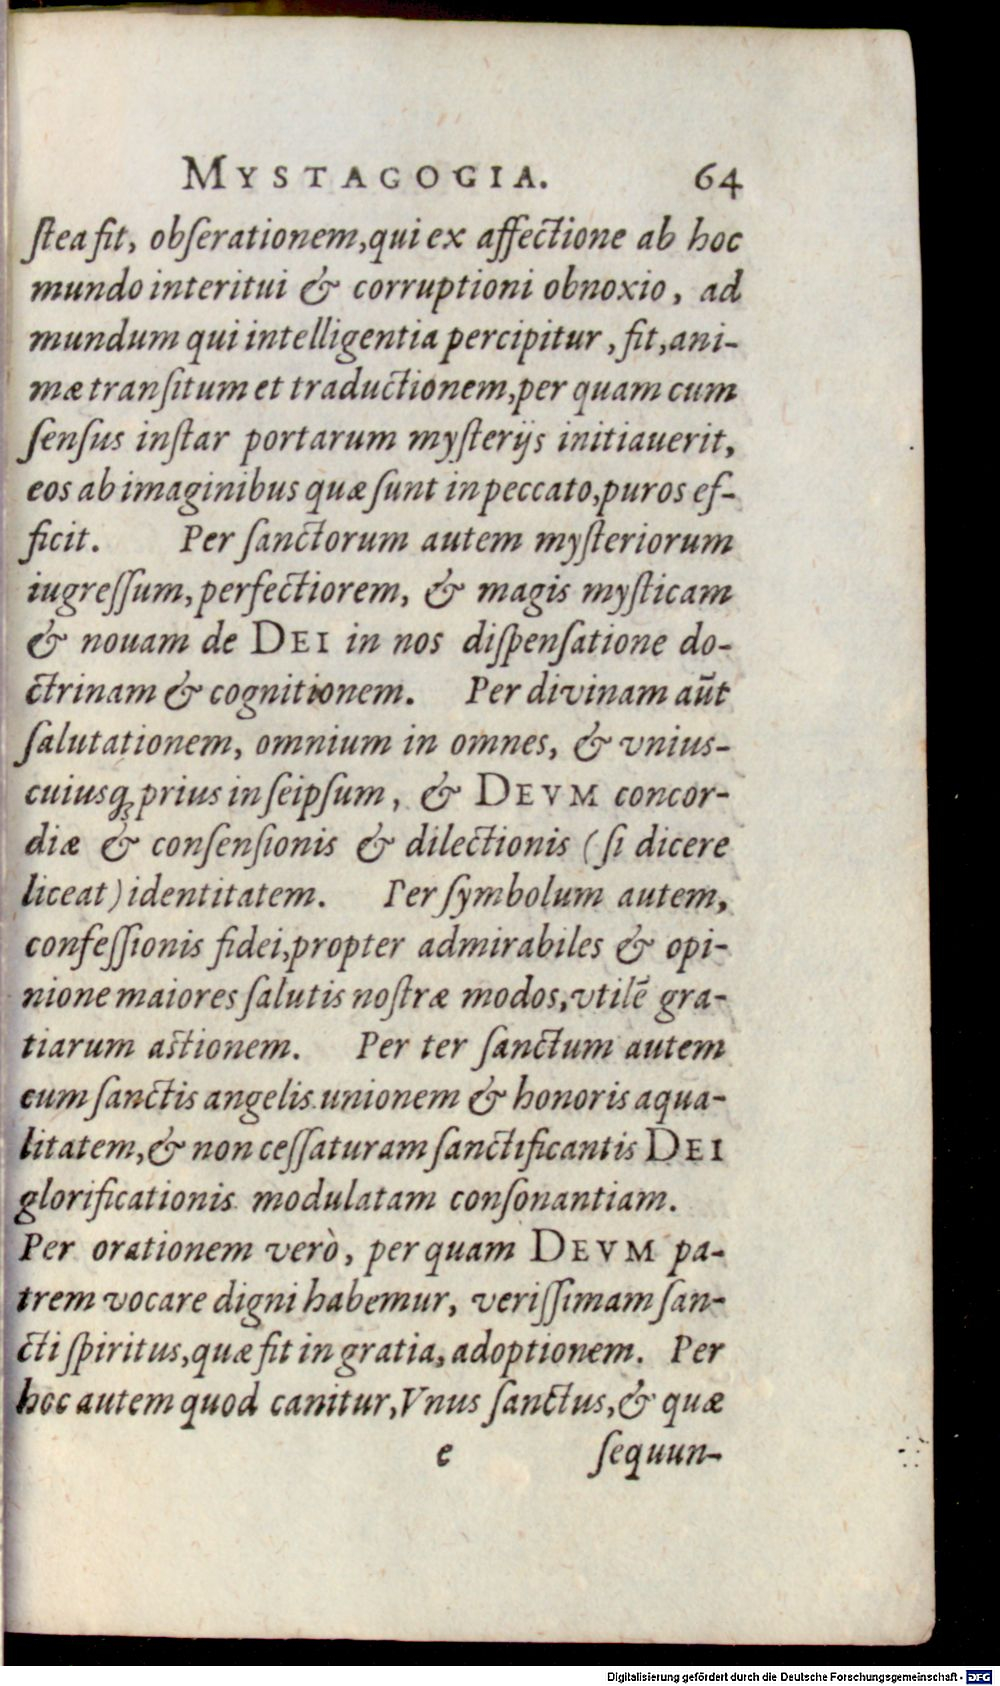 MYSTAGOGIA. 64
ſtea fit, obſerationem, qui ex affectione ab hoc
mundo interitui & corruptioni obnoxio, ad
mundum qui intelligentia percipitur, fit, ani-
mæ tranſitum et traductionem, per quam cum
ſenſus inſtar portarum myſterijs initiauerit,
eos ab imaginibus quæ ſunt in peccato, puros ef-
ficit. Per ſanctorum autem myſteriorum
iugreſſum, perfectiorem, & magis myſticam
& nouam de DEI in nos diſpenſatione do-
ctrinam & cognitionem. Per divinam aūt
ſalutationem, omnium in omnes, & vnius-
cuiusq; prius in ſeipſum, & DEVM concor-
diæ & conſenſionis & dilectionis (ſi dicere
liceat) identitatem. Per ſymbolum autem,
confeſſionis fidei, propter admirabiles & opi-
nione maiores ſalutis noſtræ modos, vtilē gra-
tiarum actionem. Per ter ſanctum autem
cum ſanctis angelis unionem & honoris aqua-
litatem, & non ceſſaturam ſanctificantis DEI
glorificationis modulatam conſonantiam.
Per orationem verò, per quam DEVM pa-
trem vocare digni habemur, veriſſimam ſan-
cti ſpiritus, quæ fit in gratia, adoptionem. Per
hoc autem quod canitur, Vnus ſanctus, & quæ
e ſequun-
Digitalisierung gefördert durch die Deutsche Forschungsgemeinschaft - DFG